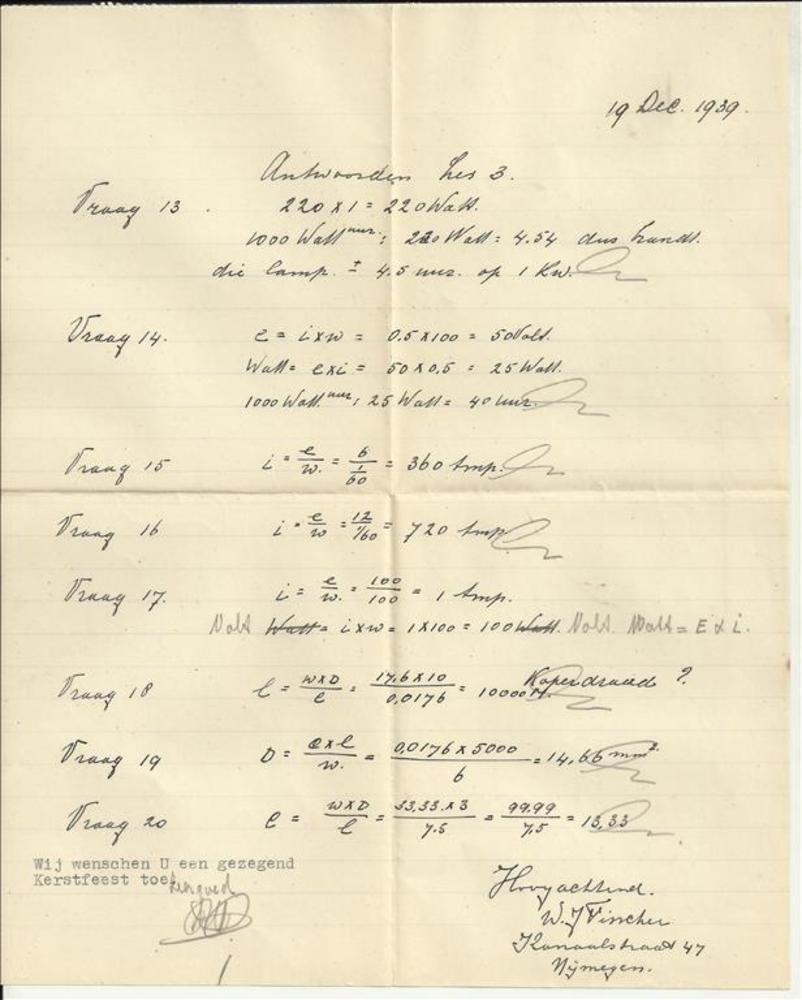 19 Dec. 1939.
Antwoorden Les 3.
Vraag 13. 220 x 1 = 220 Watt.
1000 Watt uur : 220 Watt = 4.54 dus brandt
die lamp ± 4.5 uur op 1 Kw.
Vraag 14. e = i x w = 0.5 x 100 = 50 Volt.
Watt = e x i = 50 x 0,5 = 25 Watt.
1000 Watt uur : 25 Watt = 40 uur.
Vraag 15 i = e/w. = 6/(1/60) = 360 Amp.
Vraag 16 i = e/w = 12/(1/60) = 720 Amp.
Vraag 17. i = e/w. = 100/100 = 1 Amp.
Volt Watt = i x w = 1 x 100 = 100 Watt. Volt. Watt = E x i.
Vraag 18 l = w x D / e = 17,6 x 10 / 0,0176 = 10000 M. Koperdraad ?
Vraag 19 D = e x l / w. = 0,0176 x 5000 / 6 = 14,66 mm².
Vraag 20 e = w x D / l = 33,33 x 3 / 7.5 = 99.99 / 7,5 = 13,33
Wij wenschen U een gezegend
Kerstfeest toe.
Hoogachtend.
W. J Visscher
Kanaalstraat 47
Nijmegen.